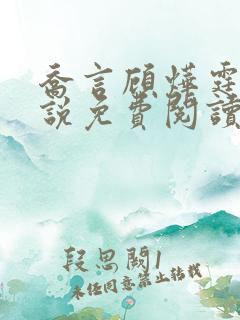 喬言顧燁霆
説免費閱讀
段思閱1
未经同意禁止转载